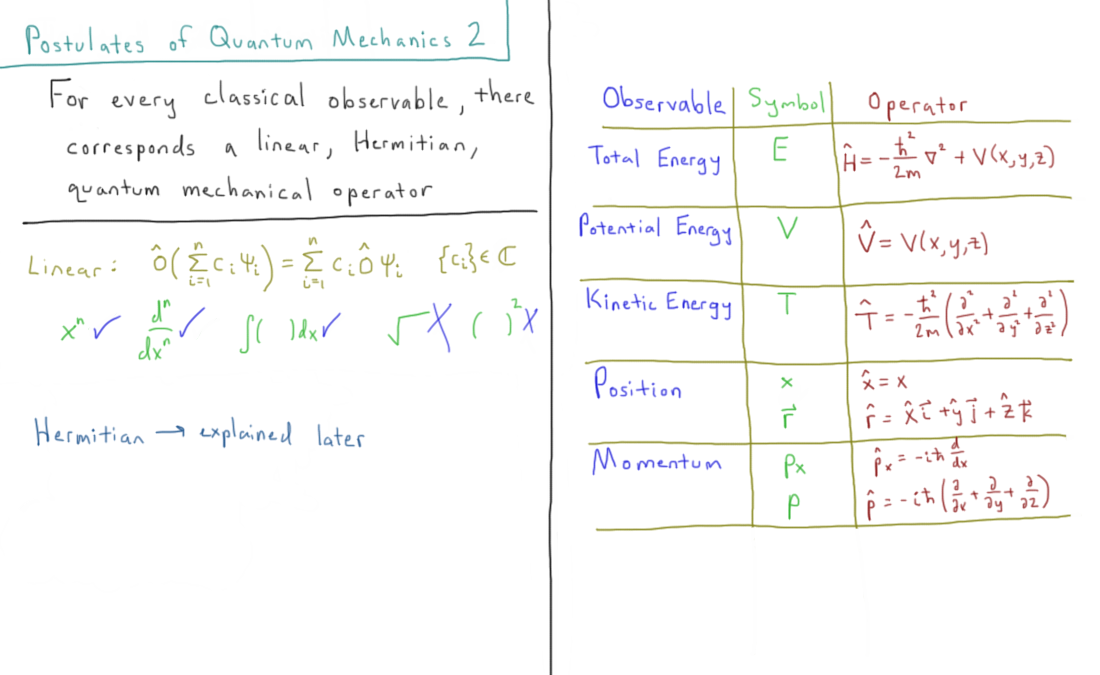 Postulates of Quantum Mechanics 2
For every classical observable, there
corresponds a linear, Hermitian,
quantum mechanical operator
Linear: ô(∑ᵢ₌₁ⁿ cᵢψᵢ) = ∑ᵢ₌₁ⁿ cᵢÔψᵢ {cᵢ}∈ ℂ
xⁿ ✓ dⁿ/dxⁿ ✓ ∫( )dx ✓ √ X ( )² X
Hermitian → explained later
Observable Symbol Operator
Total Energy E Ĥ = -ħ²/2m ∇² + V(x,y,z)
Potential Energy V V̂ = V(x,y,z)
Kinetic Energy T T̂ = -ħ²/2m (∂²/∂x² + ∂²/∂y² + ∂²/∂z²)
Position x x̂ = x
r⃗ r̂ = x̂ i⃗ + ŷ j⃗ + ẑ k⃗
Momentum Px p̂x = -iħ d/dx
P p̂ = -iħ (∂/∂x + ∂/∂y + ∂/∂z)